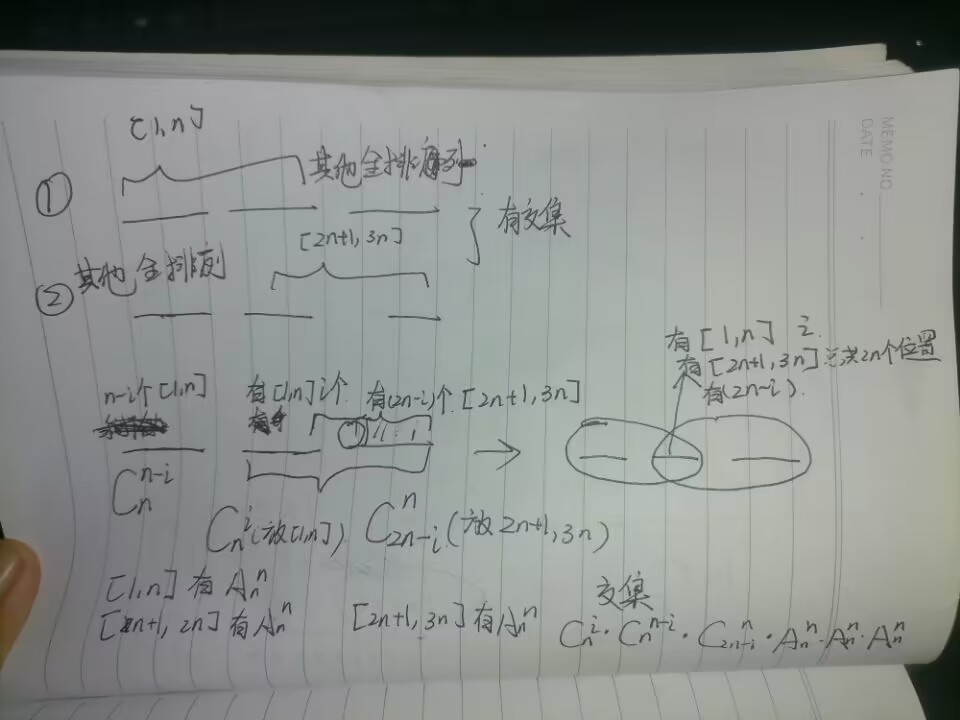 MEMO NO
DATE
[1,n]
① 其他全排列
[2n+1,3n]
有交集
② 其他全排列
有[1,n] i
有[2n+1,3n] 总共2n个位置
有(2n-i)
n-i个[1,n] 有[1,n]i个 有(2n-i)个 [2n+1,3n]
C_n^{n-i}
C_n^i(放[1,n]) C_{2n-i}^n(放2n+1,3n)
[1,n]有A_n^n
[n+1,2n]有A_n^n [2n+1,3n]有A_n^n
交集
C_n^i·C_n^{n-i}·C_{2n-i}^n·A_n^n·A_n^n·A_n^n